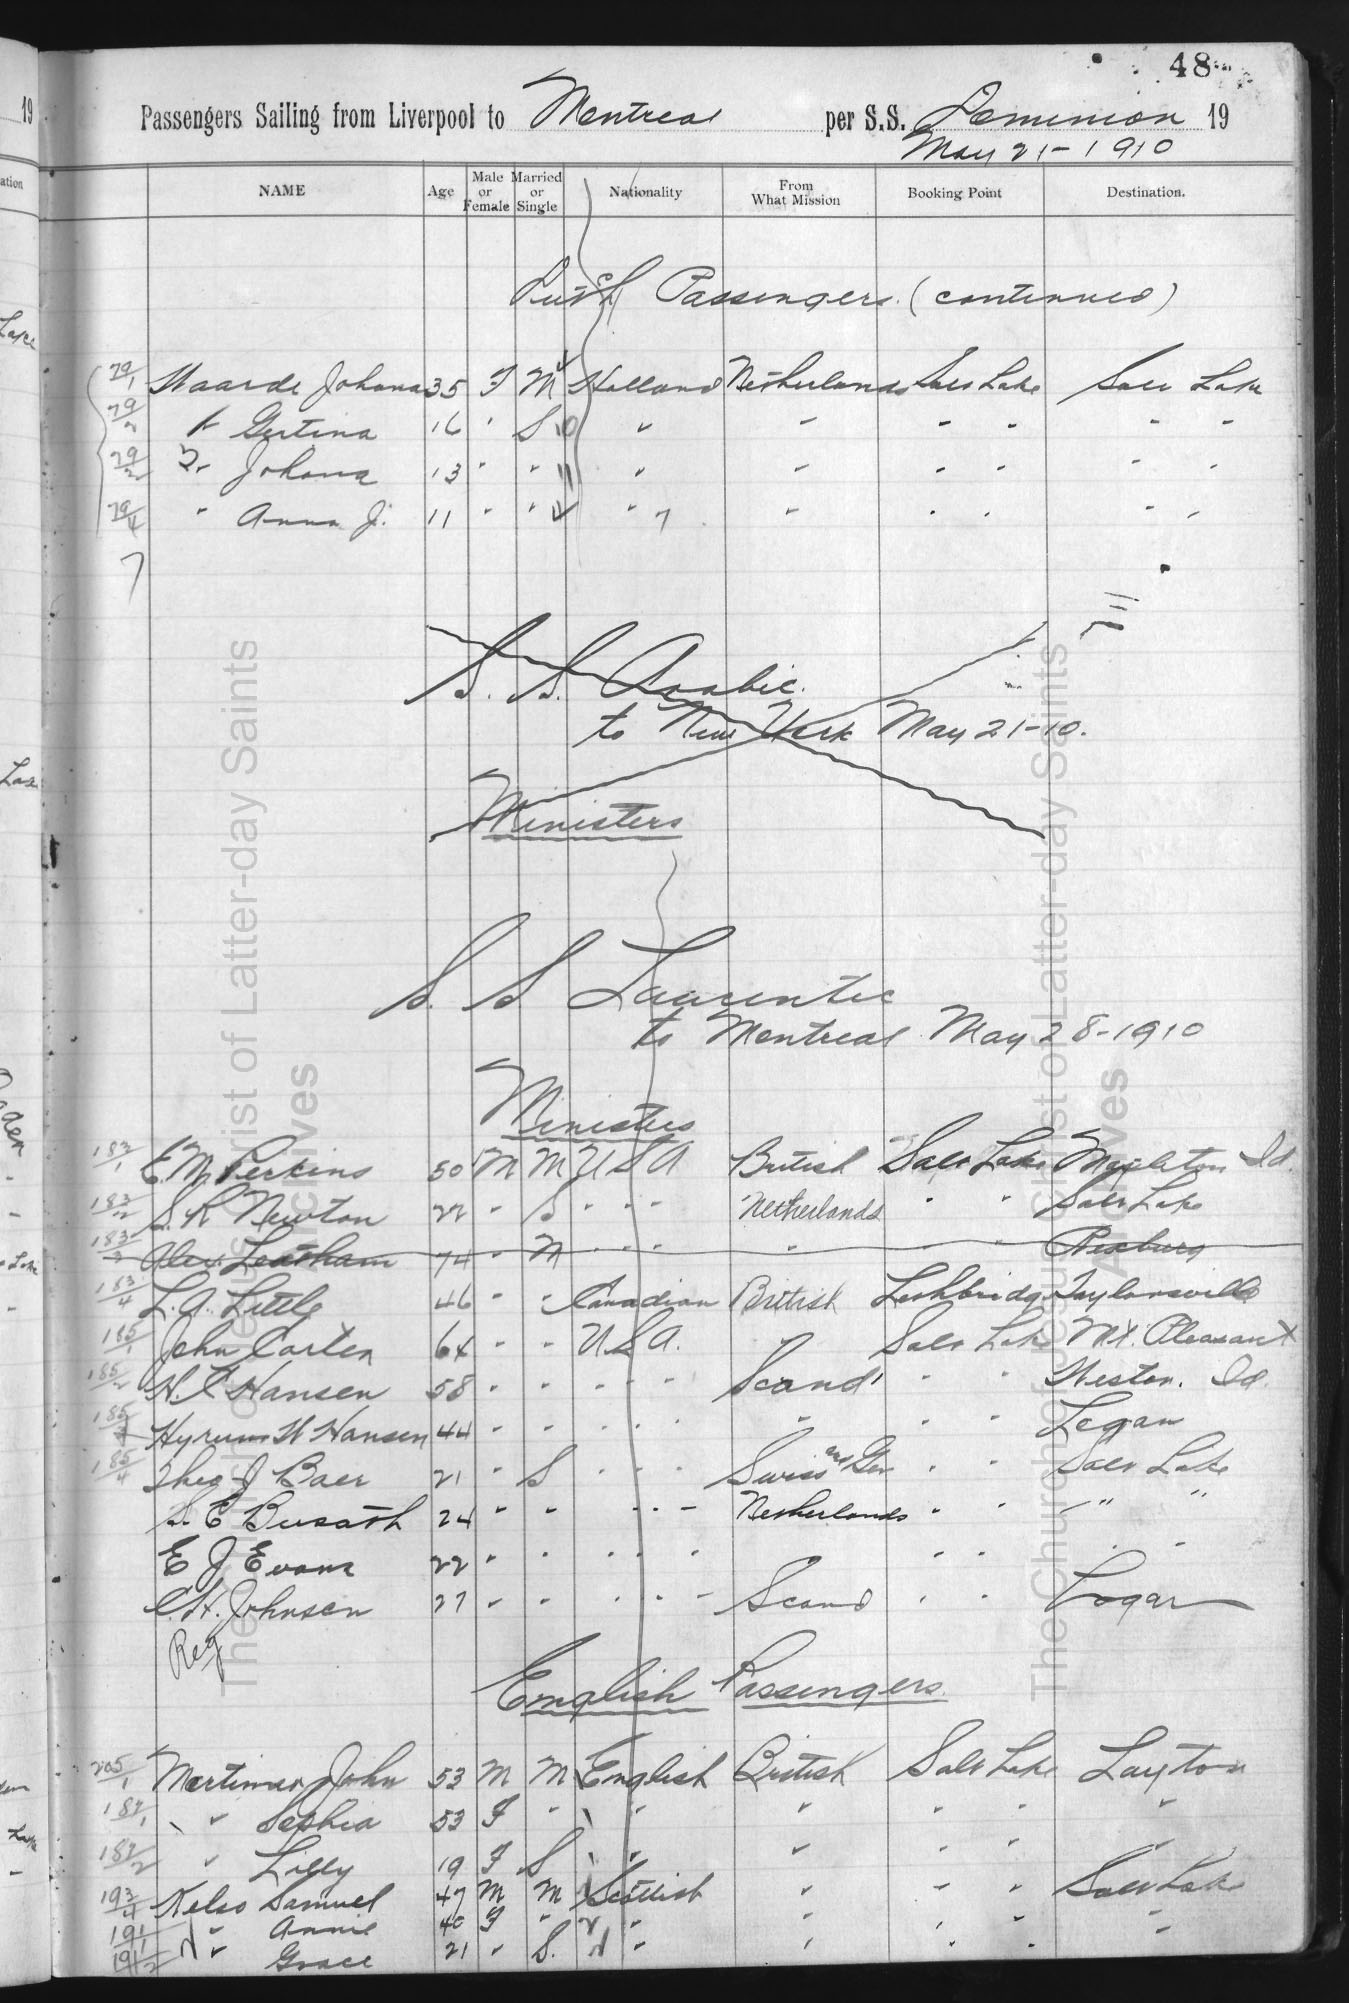 48
Passengers Sailing from Liverpool to Montreal per S.S. Dominion 19
May 21-1910
NAME Age Male or Female Married or Single Nationality From What Mission Booking Point Destination.
Dutch Passengers (continued)
79/1 Waarde Johana 35 F M Holland Netherlands Salt Lake Salt Lake
79/2 Gertina 16 " S " " " " " "
79/3 " Johana 13 " " " " " " " "
79/4 " Anna J. 11 " " " " " " " "
7
S. S. Arabic.
to New York May 21-10.
Ministers
S. S. Laurentic
to Montreal May 28-1910
Ministers
183/1 E. M. Perkins 50 M M U S A British Salt Lake Mapleton Id.
183/2 S. R Newton 22 " S " " " Netherlands " " Salt Lake
183/3 Alex. Leatham 74 " M " " " " " " Rexburg
183/4 L. A. Little 46 " " Canadian British Lethbridge Taylorsville
185/1 John Carter 64 " " U S A. " Salt Lake Mt. Pleasant
185/2 H. C Hansen 58 " " " " " Scand " " Weston. Id.
185/3 Hyrum W Hansen 44 " " " " " " " " Logan
185/4 Theo J Baer 21 " S " " " Swiss and Ger " " Salt Lake
S. E Busath 24 " " " " " Netherlands " " " "
E J Evans 22 " " " " " " " " " "
C. H. Johnson 27 " " " " " Scand " " Logan
Reg
English Passengers
205/1 Mortimer John 53 M M English British Salt Lake Layton
187/1 " Sophia 53 F " " " " " "
187/2 " Lilly 19 F S " " " " "
193/4 Kelso Samuel 47 M M Scottish " " " Salt Lake
191/1 " Annie 40 F " " " " " "
191/2 " Grace 21 " S. " " " "
The Church of Jesus Christ of Latter-day Saints
Archives
The Church of Jesus Christ of Latter-day Saints
Archives